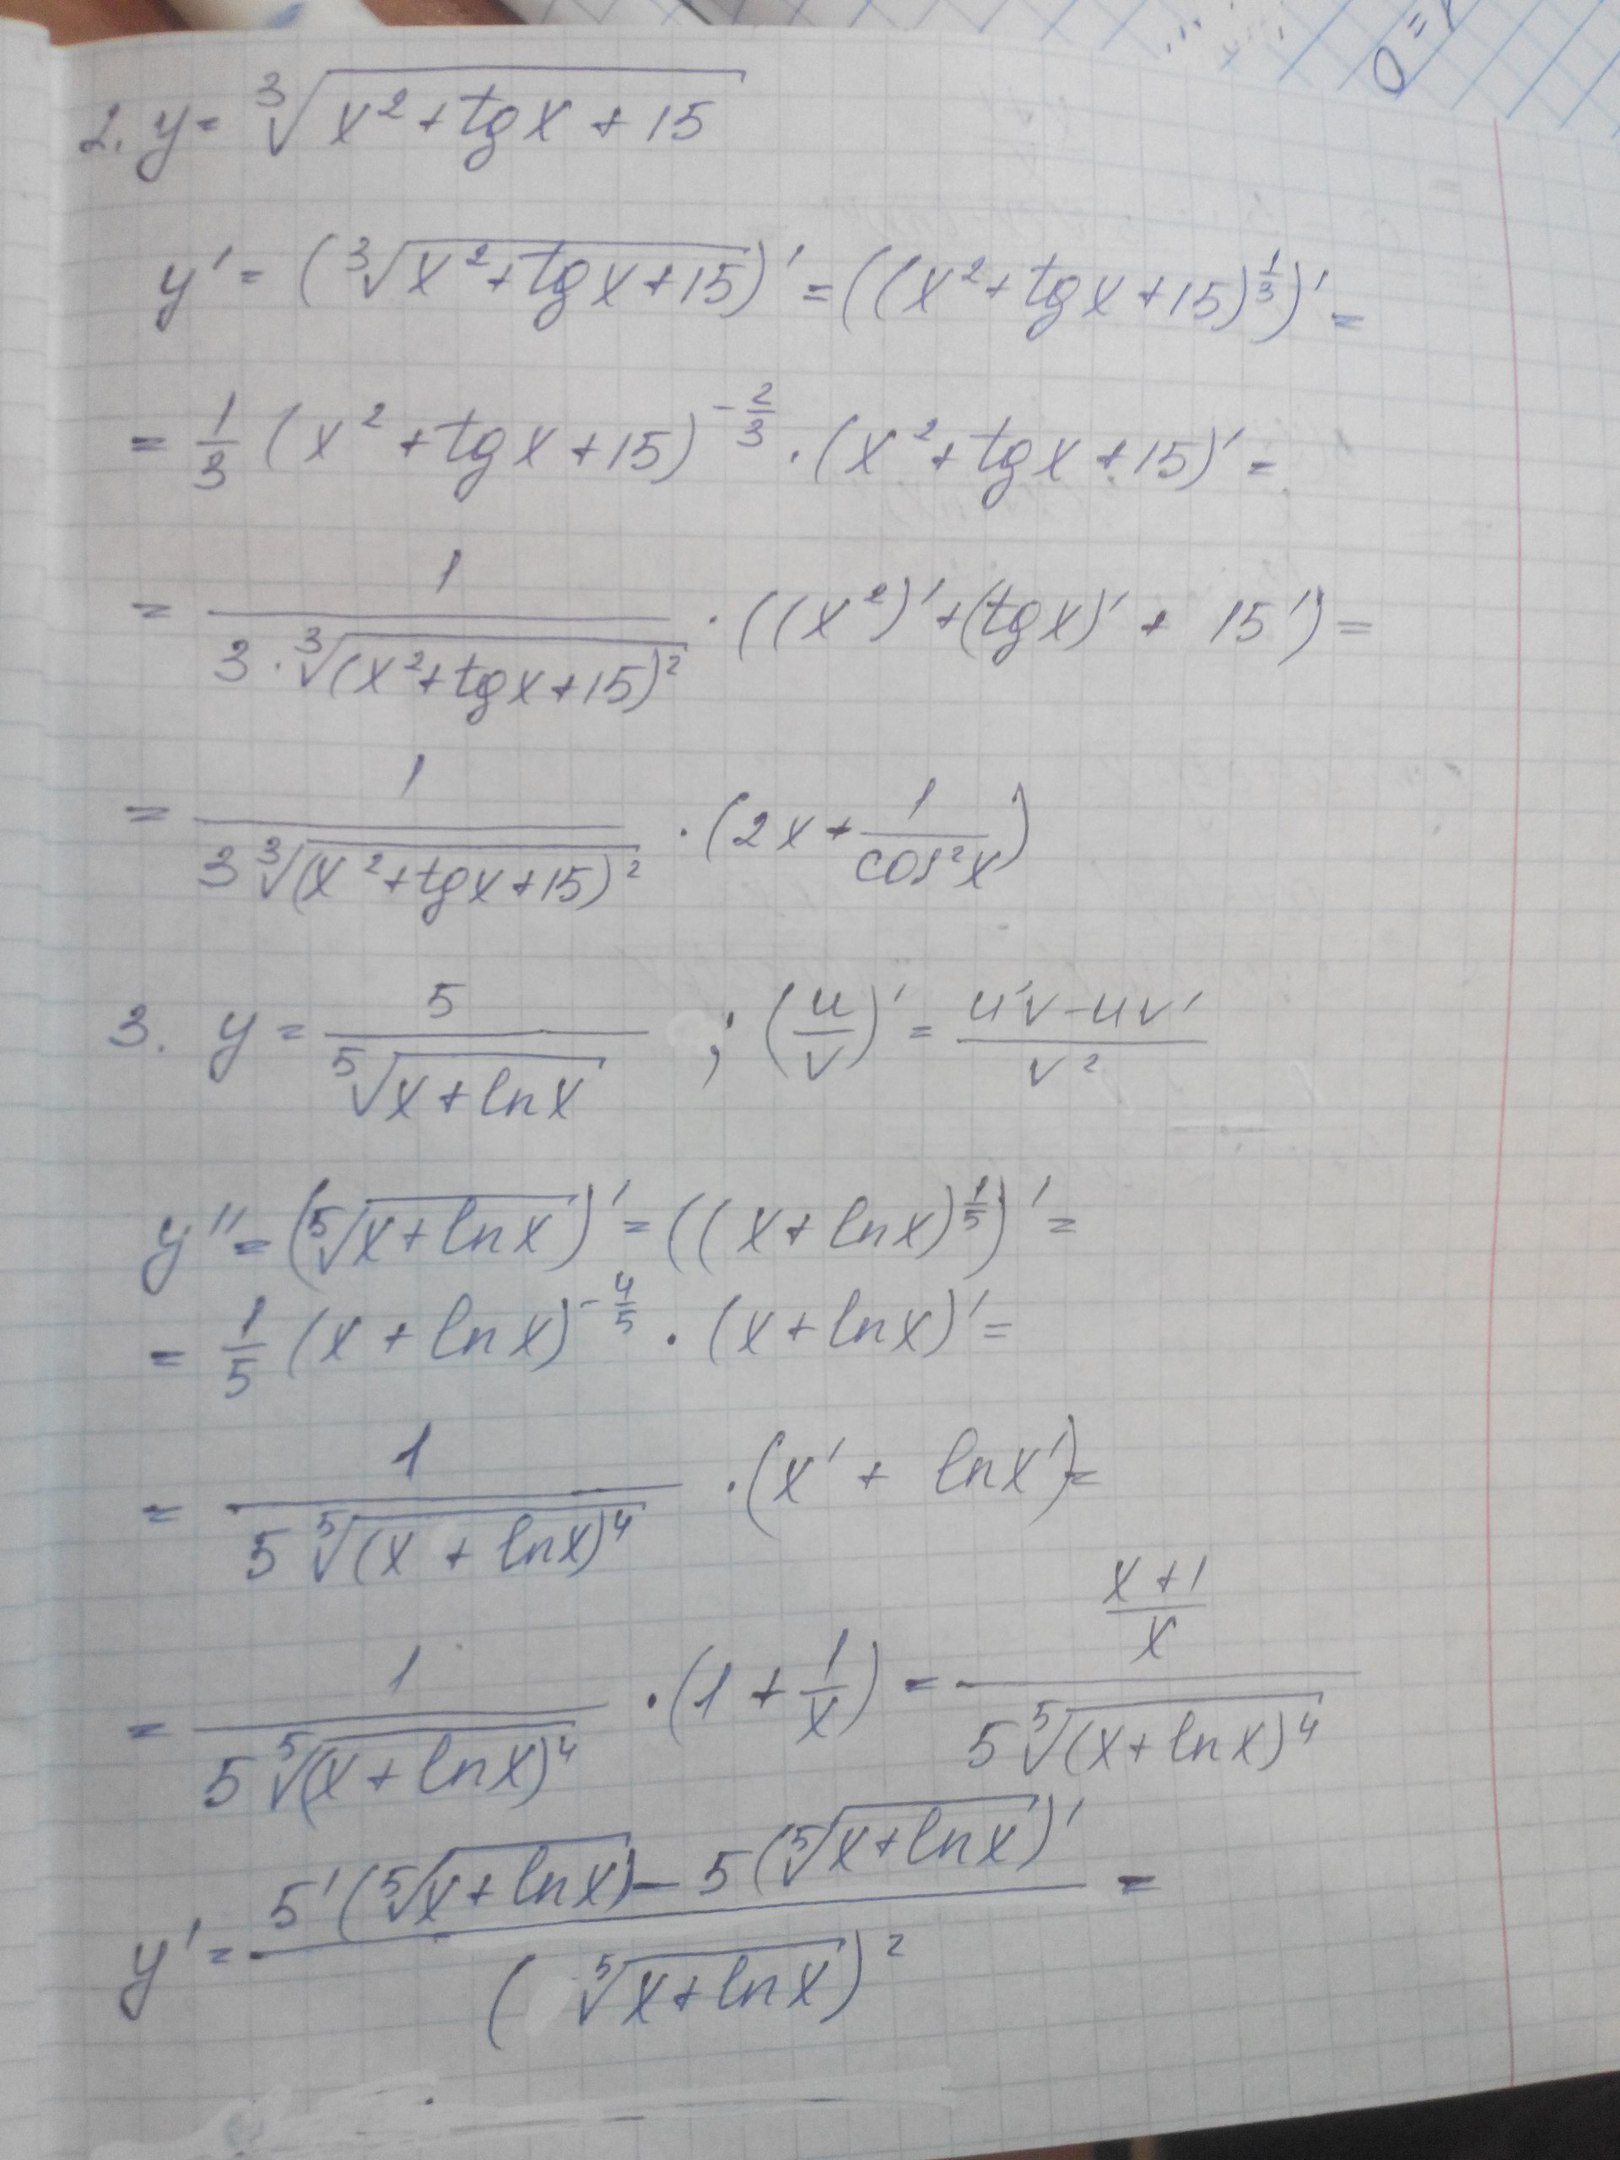 0 =
2. y = ∛(x² + tg x + 15)
y' = (∛(x² + tg x + 15))' = ((x² + tg x + 15)^(1/3))' =
= 1/3 (x² + tg x + 15)^(-2/3) · (x² + tg x + 15)' =
= 1/(3 · ∛((x² + tg x + 15)²)) · ((x²)' + (tg x)' + 15') =
= 1/(3 ∛((x² + tg x + 15)²)) · (2x + 1/(cos² x))
3. y = 5/(⁵√(x + ln x)) ; (u/v)' = (u'v - uv')/(v²)
y'' = (⁵√(x + ln x))' = ((x + ln x)^(1/5))' =
= 1/5 (x + ln x)^(-4/5) · (x + ln x)' =
= 1/(5 ⁵√((x + ln x)⁴)) · (x' + ln x') =
= 1/(5 ⁵√((x + ln x)⁴)) · (1 + 1/x) = ((x + 1)/x)/(5 ⁵√((x + ln x)⁴))
y' = (5'(⁵√(x + ln x)) - 5(⁵√(x + ln x))')/((⁵√(x + ln x))²) =